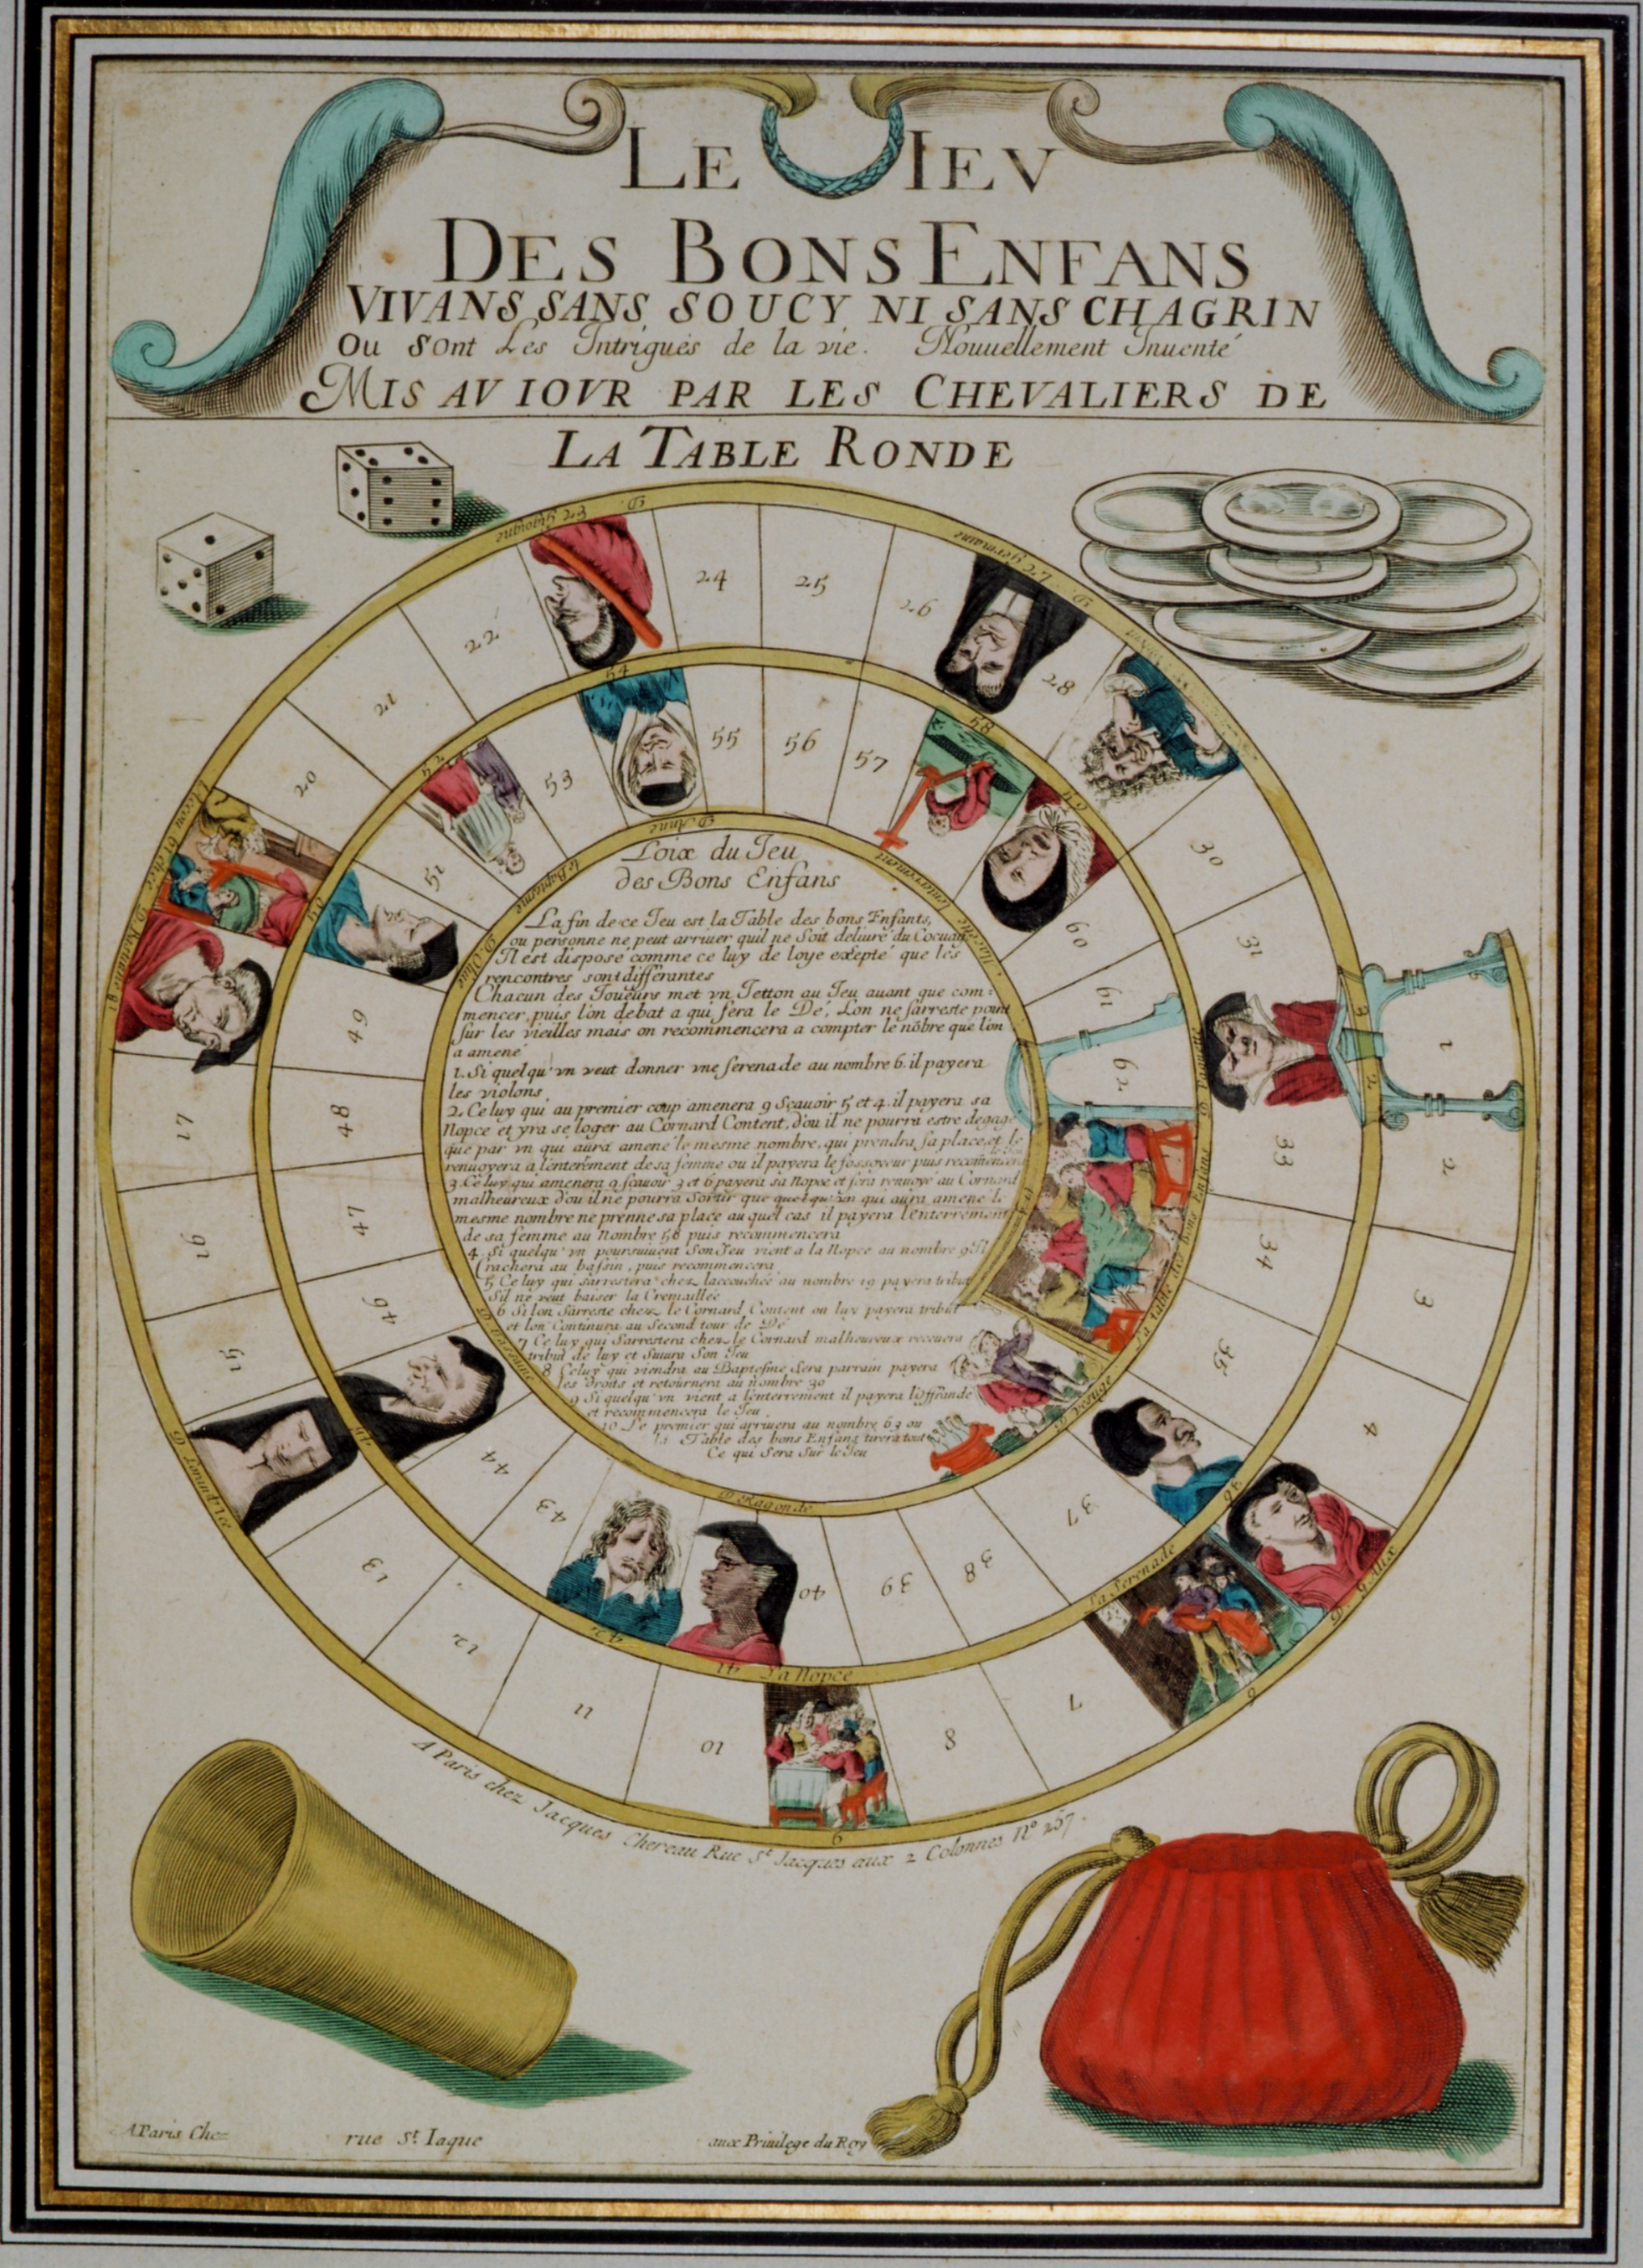 LE IEV
DES BONS ENFANS
VIVANS SANS SOUCY NI SANS CHAGRIN
Ou sont Les Intrigues de la vie. Nouuellement Inuenté
MIS AV IOVR PAR LES CHEVALIERS DE
LA TABLE RONDE
Loix du Jeu
des Bons Enfans
La fin de ce Jeu est la Table des bons Enfants,
ou personne ne peut arriuer quil ne Soit deliuré du Cocuag
Il est disposé comme ce luy de loye exepté que les
rencontres sont differantes
Chacun des Joueurs met vn Jetton au Jeu auant que com=
mencer, puis l'on debat a qui fera le Dé, L'on ne s'arreste point
sur les vieilles mais on recommencera a compter le nõbre que l'on
a amené
1. Si quelqu'vn veut donner vne serenade au nombre 6. il payera
les violons
2. Ce luy qui au premier coup amenera 9 Sçauoir 5 et 4. il payera sa
Nopce et yra se loger au Cornard Content, d'ou il ne pourra estre degagé
que par vn qui aura amené le mesme nombre, qui prendra sa place, et le
renuoyera a lenterement de sa femme ou il payera le fossoyeur puis recomencera
3. Ce luy qui amenera 9 sçauoir 3 et 6 payera sa Nopce et sera renuoyé au Cornard
malheureux d'ou il ne pourra sortir que quelqu'vn qui aura amené le
mesme nombre ne prenne sa place au quel cas il payera l'enterrement
de sa femme au Nombre 58 puis recommencera
4. Si quelqu'vn poursuiuant Son Jeu vient a la Nopce au nombre 9 Il
Crachera au bassin, puis recommencera
5 Ce luy qui s'arrestera chez laccouchée au nombre 19 payera tribut
S'il ne veut baiser la Cremaillée
6 Si lon s'arreste chez le Cornard Content on luy payera tribut
et lon Continura au Second tour de Dé
7 Ce luy qui s'arrestera chez le Cornard malheureux receuera
tribut de luy et Suiura Son Jeu
8 Celuy qui viendra au Baptesme Sera parrain payera
les droits et retournera au nombre 30
9 Si quelqu'vn vient a l'enterrement il payera l'offrande
et recommencera le Jeu
10 Le premier qui arriuera au nombre 63 ou
la Table des bons Enfans tirera tout
Ce qui Sera Sur le Jeu
1
2
3
4
La Serenade
6
7
8
La Nopce
9
10
11
12
13
15
16
17
18
20
21
22
23
24
25
26
27
28
30
31
33
34
35
36
37
38
39
40
D Ragonde
41
42
43
44
46
47
48
49
51
le Baptesme
53
D Anne
54
55
56
57
58
lenterrement
60
61
62
La table des Bons Enfans
A Paris chez Jacques Chereau Rue St Jacques aux 2 Colonnes No 257.
A Paris Chez
rue St. Iaque
auec Priuilege du Roy